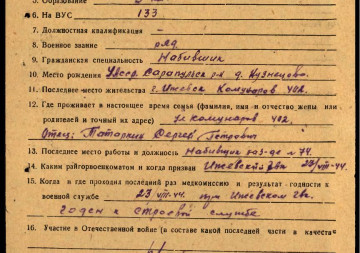 5. Образование
6. На ВУС 133
7. Должностная квалификация –
8. Военное звание ряд.
9. Гражданская специальность Набивщик
10. Место рождения УАССР Сарапульск р-н д. Кузнецово
11. Последнее место жительства г. Ижевск Комунаров 402.
12. Где проживает в настоящее время семья (фамилия, имя и отчество жены или
родителей и точный их адрес) ул Комунаров 402,
Отец: Сергей Петрович
13. Последнее место работы и должность Набивщик зав-де № 74.
14. Каким райгорвоенкоматом и когда призван Ижевский гвк 23/VIII-44.
15. Когда и где проходил последний раз медкомиссию и результат годности к
военной службе 23.VIII-44. при Ижевском гвк.
годен к строевой службе
16. Участие в Отечественной войне (в составе какой последней части в качеств